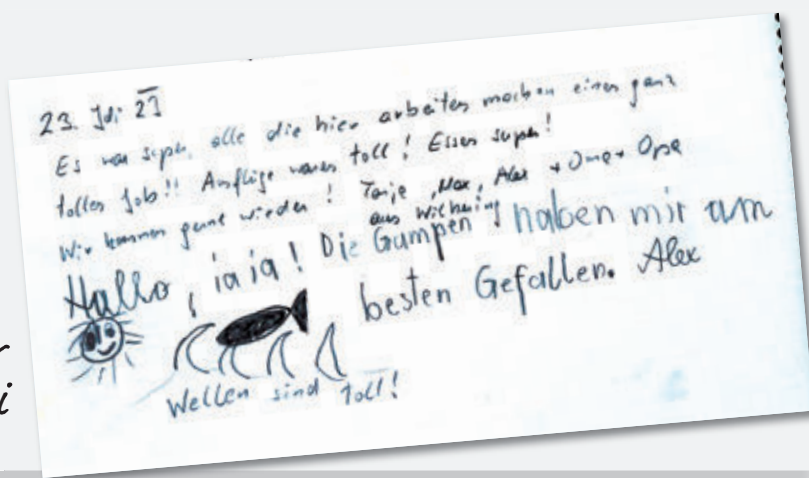 23. Juli 21
Es war super, alle die hier arbeiten machen einen ganz
tollen Job!! Ausflüge waren toll! Essen super!
Wir kommen gerne wieder! Tanja, Max, Alex + Oma + Opa
aus
Hallo, ia ia! Die Gumpen haben mir am
besten Gefallen. Alex
Wellen sind toll!